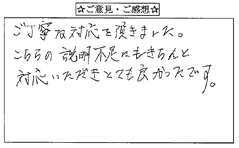 ☆ご意見・ご感想☆
ご丁寧な対応を頂きました。
こちらの説明不足にもきちんと
対応いただきとても良かったです。